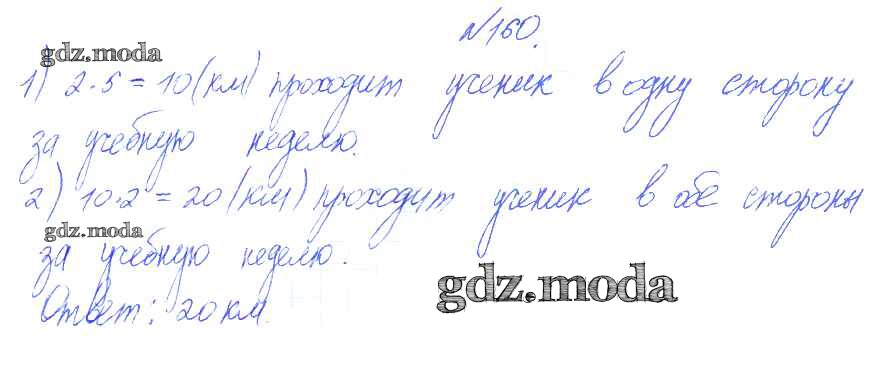 №160.
gdz.moda
1) 2·5 = 10 (км) проходит ученик в одну сторону
за учебную неделю.
2) 10·2 = 20 (км) проходит ученик в обе стороны
gdz.moda
за учебную неделю.
gdz.moda
Ответ: 20 км.